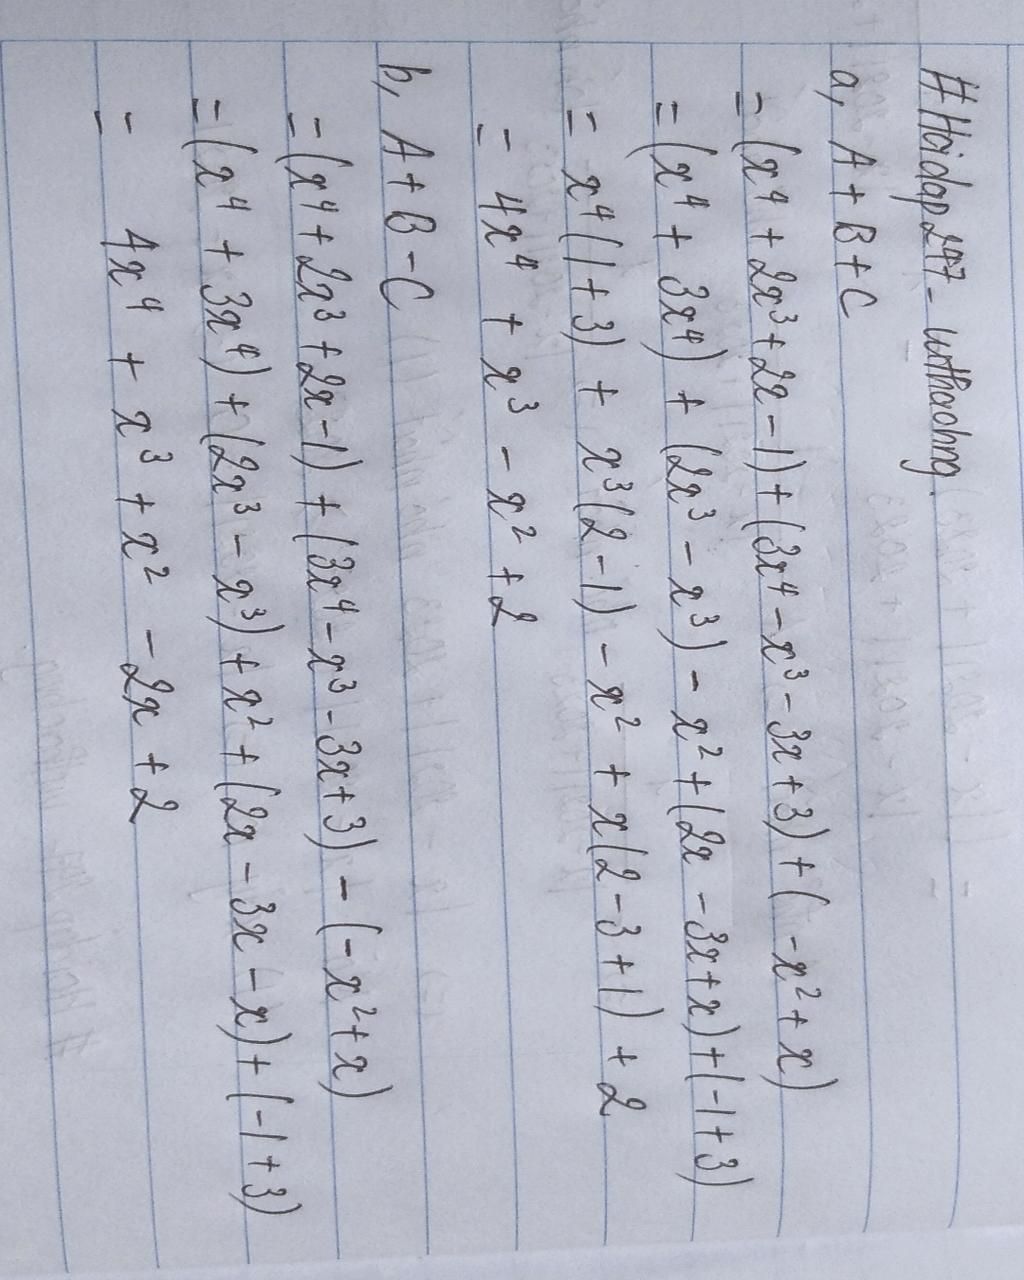 #Hoidap247 - unthachng.
a, A + B + C
= (x⁴ + 2x³ + 2x - 1) + (3x⁴ - x³ - 3x + 3) + ( - x² + x)
= (x⁴ + 3x⁴) + (2x³ - x³) - x² + (2x - 3x + x) + (-1 + 3)
= x⁴(1 + 3) + x³(2 - 1) - x² + x(2 - 3 + 1) + 2
= 4x⁴ + x³ - x² + 2
b, A + B - C
= (x⁴ + 2x³ + 2x - 1) + (3x⁴ - x³ - 3x + 3) - (-x² + x)
= (x⁴ + 3x⁴) + (2x³ - x³) + x² + (2x - 3x - x) + (-1 + 3)
= 4x⁴ + x³ + x² - 2x + 2